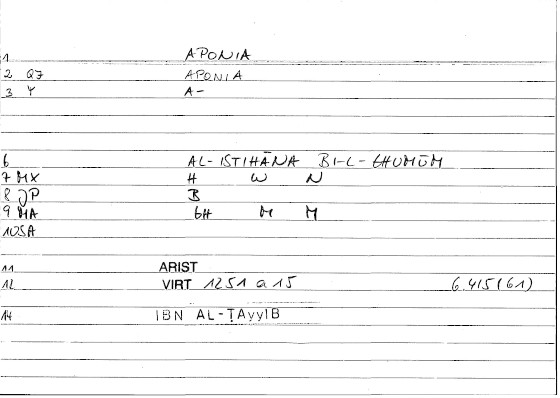 1 APONIA
2 QJ APONIA
3 Y A-
6 AL-ISTIHĀNA BI-L-GHUMŪM
7 MX H W N
8 JP B
9 MA GH M M
10 SA
11 ARIST
12 VIRT 1251 a 15 6.415(61)
14 IBN AL-ṬAyyIB